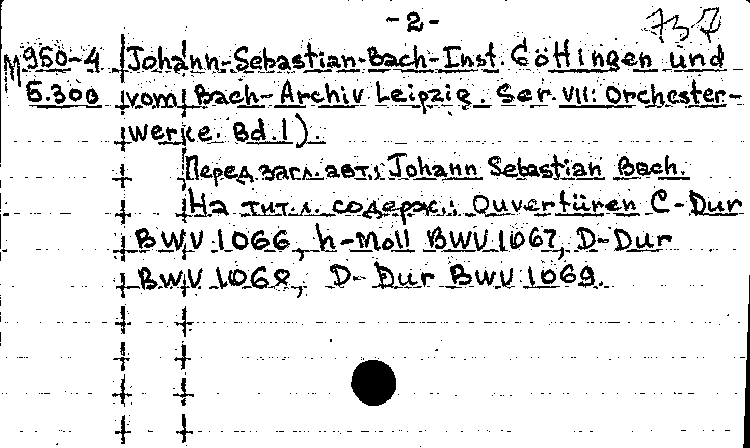 -2-
737
М 950-4 Johann-Sebastian-Bach-Inst. Göttingen und
5.300 vom Bach-Archiv Leipzig. Ser. VII: Orchester-
werke. Bd.1).
Перед загл. авт.: Johann Sebastian Bach.
На тит.л. содерж.: Ouvertüren C-Dur
BWV 1066, h-Moll BWV 1067, D-Dur
BWV 1068, D-Dur BWV 1069.